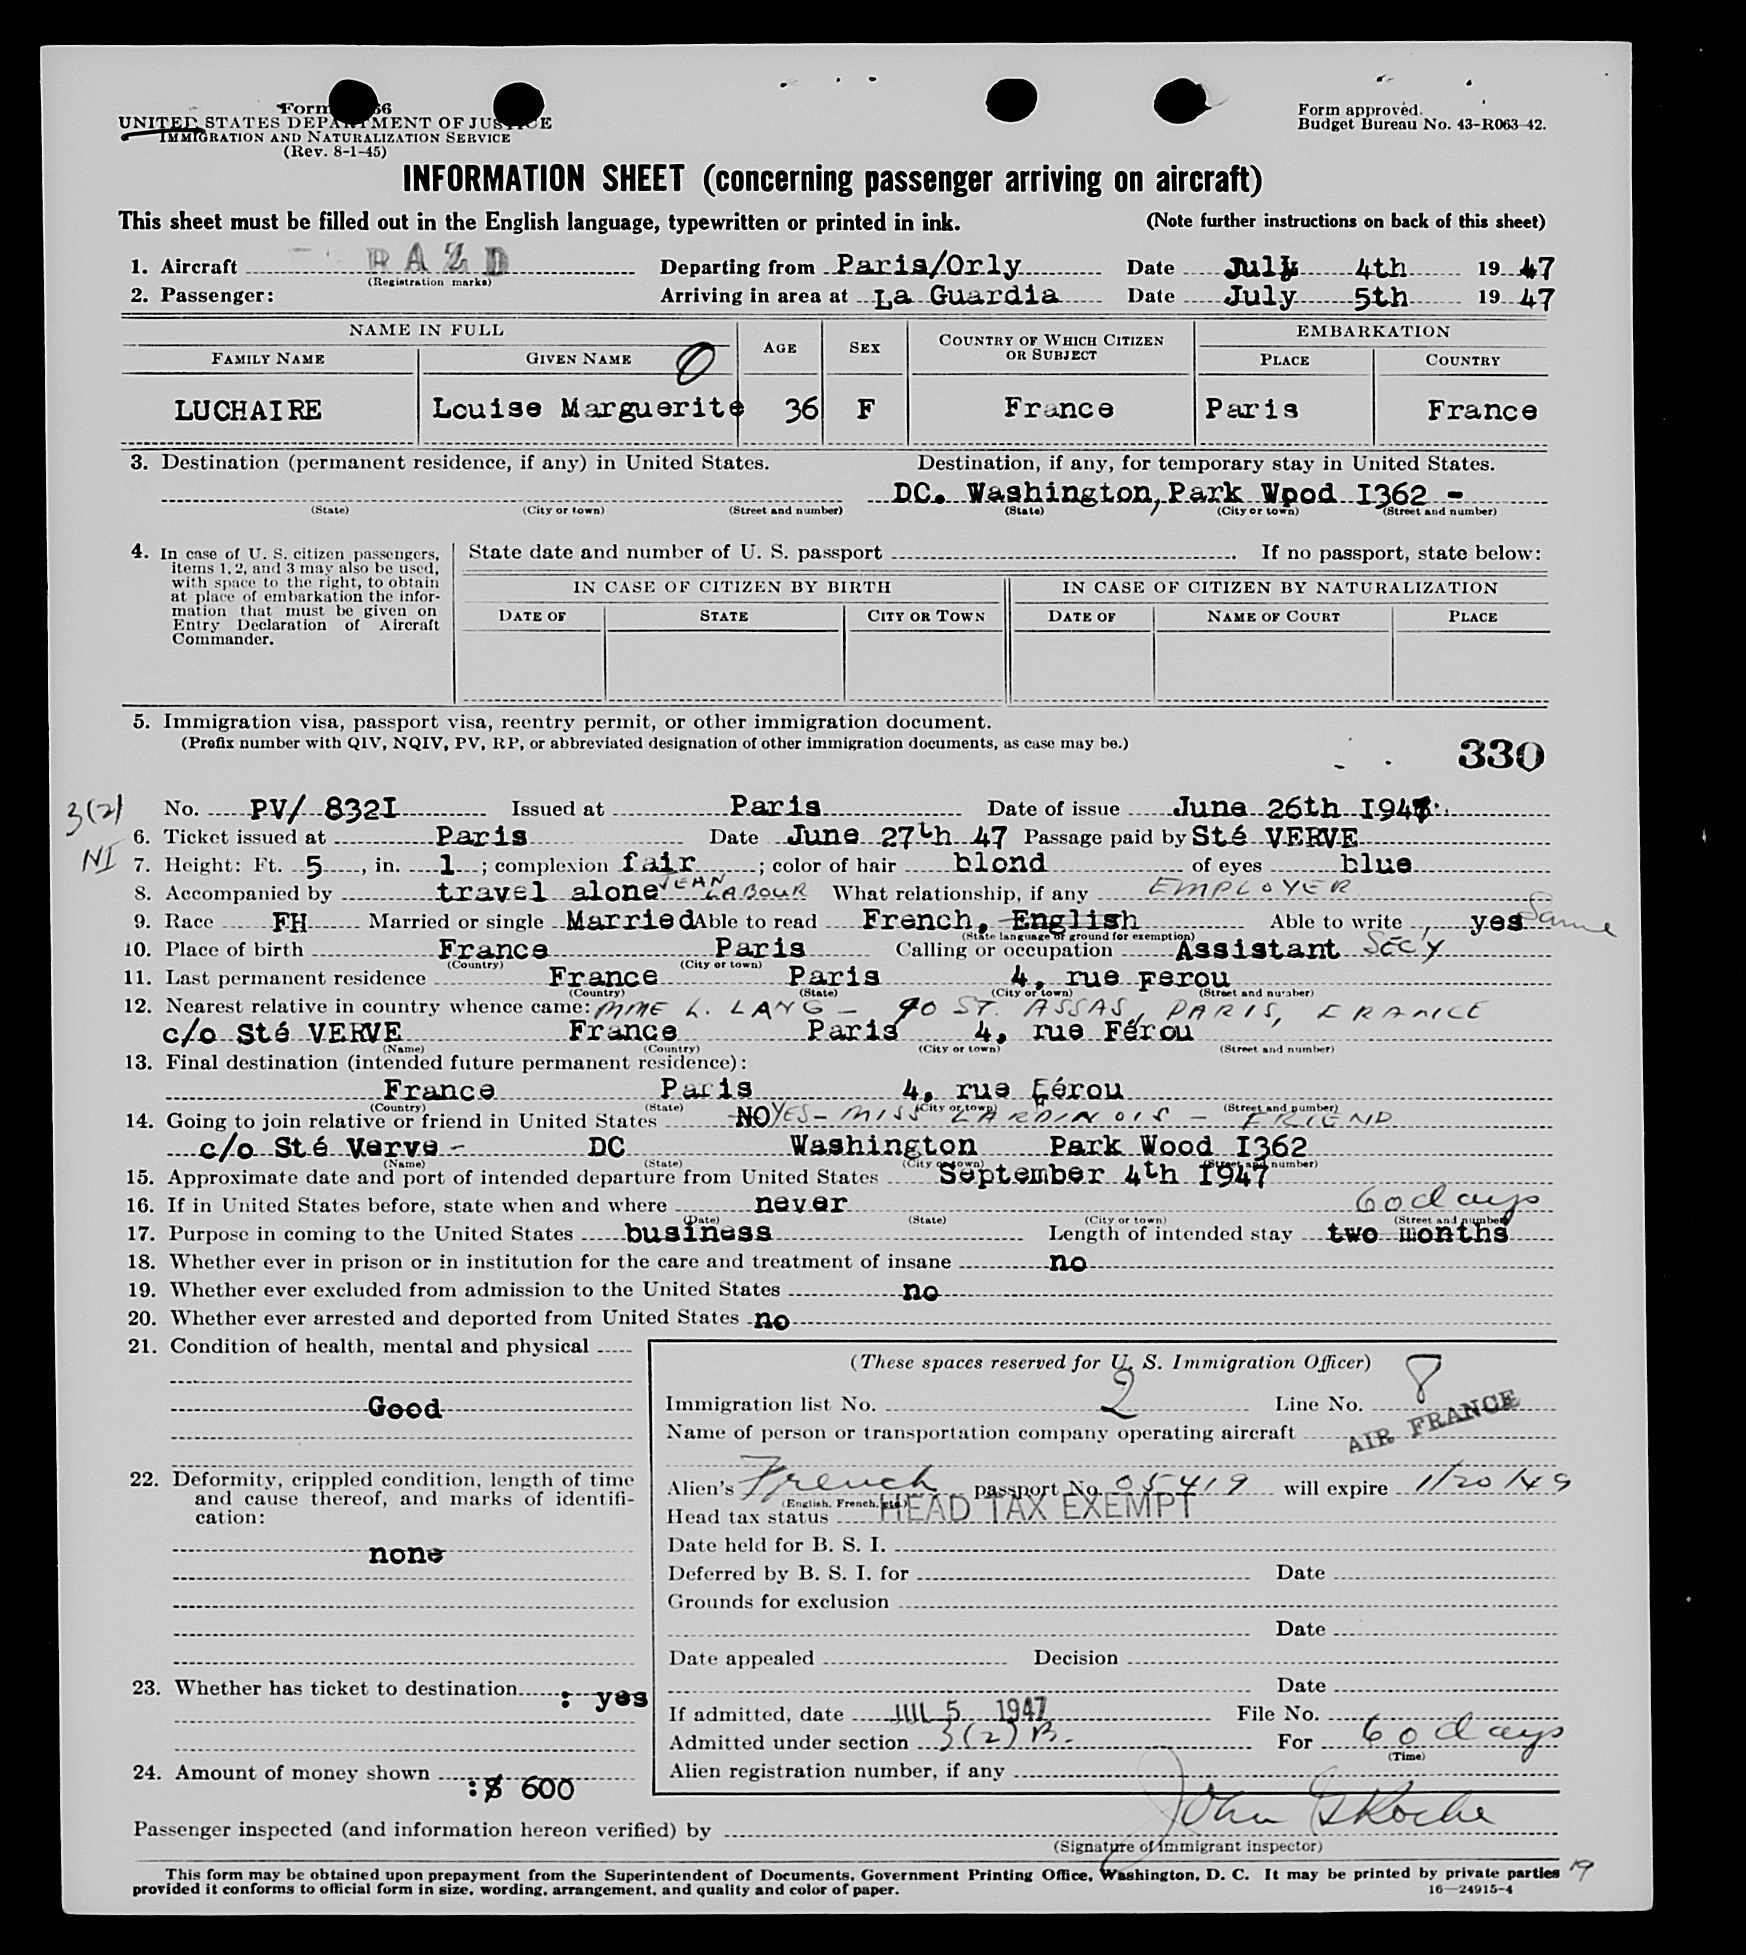 Form 66
UNITED STATES DEPARTMENT OF JUSTICE
IMMIGRATION AND NATURALIZATION SERVICE
(Rev. 8-1-45)
Form approved.
Budget Bureau No. 43-R063-42.
INFORMATION SHEET (concerning passenger arriving on aircraft)
This sheet must be filled out in the English language, typewritten or printed in ink. (Note further instructions on back of this sheet)
1. Aircraft RAZD Departing from Paris/Orly Date July 4th 19 47
(Registration marks)
2. Passenger: Arriving in area at La Guardia Date July 5th 19 47
NAME IN FULL AGE SEX COUNTRY OF WHICH CITIZEN OR SUBJECT EMBARKATION
FAMILY NAME GIVEN NAME PLACE COUNTRY
LUCHAIRE Louise Marguerite 36 F France Paris France
3. Destination (permanent residence, if any) in United States. Destination, if any, for temporary stay in United States.
DC. Washington, Park Wood I362 -
(State) (City or town) (Street and number) (State) (City or town) (Street and number)
4. In case of U. S. citizen passengers, items 1, 2, and 3 may also be used, with space to the right, to obtain at place of embarkation the information that must be given on Entry Declaration of Aircraft Commander.
State date and number of U. S. passport . If no passport, state below:
IN CASE OF CITIZEN BY BIRTH IN CASE OF CITIZEN BY NATURALIZATION
DATE OF STATE CITY OR TOWN DATE OF NAME OF COURT PLACE
5. Immigration visa, passport visa, reentry permit, or other immigration document.
(Prefix number with QIV, NQIV, PV, RP, or abbreviated designation of other immigration documents, as case may be.)
330
3(2) No. PV/ 832I Issued at Paris Date of issue June 26th I947
6. Ticket issued at Paris Date June 27th 47 Passage paid by Sté VERVE
NI 7. Height: Ft. 5, in. 1; complexion fair; color of hair blond of eyes blue
8. Accompanied by travel alone JEAN LABOUR What relationship, if any EMPLOYER
9. Race FH Married or single Married Able to read French, English Able to write , yes Same
(State language or ground for exemption)
10. Place of birth France Paris Calling or occupation Assistant SEC'Y
(Country) (City or town)
11. Last permanent residence France Paris 4, rue Ferou
(Country) (State) (City or town) (Street and number)
12. Nearest relative in country whence came: MME L. LANG - 90 ST. ASSAS, PARIS, FRANCE
c/o Sté VERVE France Paris 4, rue Férou
(Name) (Country) (City or town) (Street and number)
13. Final destination (intended future permanent residence):
France Paris 4, rue Férou
(Country) (State) (City or town) (Street and number)
14. Going to join relative or friend in United States NO YES - MISS LARDINOIS - FRIEND
c/o Sté Verve - DC Washington Park Wood I362
(Name) (State) (City or town) (Street and number)
15. Approximate date and port of intended departure from United States September 4th I947
16. If in United States before, state when and where never 60 days
(Date) (State) (City or town) (Street and number)
17. Purpose in coming to the United States business Length of intended stay two months
18. Whether ever in prison or in institution for the care and treatment of insane no
19. Whether ever excluded from admission to the United States no
20. Whether ever arrested and deported from United States no
21. Condition of health, mental and physical
Good
22. Deformity, crippled condition, length of time and cause thereof, and marks of identification:
none
23. Whether has ticket to destination : yes
24. Amount of money shown :$ 600
(These spaces reserved for U. S. Immigration Officer)
Immigration list No. 2 Line No. 8
Name of person or transportation company operating aircraft AIR FRANCE
Alien's French passport No. 05419 will expire 1/20/49
(English, French, etc.)
Head tax status HEAD TAX EXEMPT
Date held for B. S. I.
Deferred by B. S. I. for Date
Grounds for exclusion
Date
Date appealed Decision
Date
If admitted, date JUL 5 1947 File No.
Admitted under section 3(2)B. For 60 days
(Time)
Alien registration number, if any
Passenger inspected (and information hereon verified) by John Roche
(Signature of immigrant inspector)
This form may be obtained upon prepayment from the Superintendent of Documents, Government Printing Office, Washington, D. C. It may be printed by private parties 19
provided it conforms to official form in size, wording, arrangement, and quality and color of paper. 16—24915-4